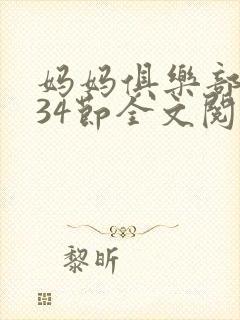 妈妈俱樂部
34節全文閱
黎昕